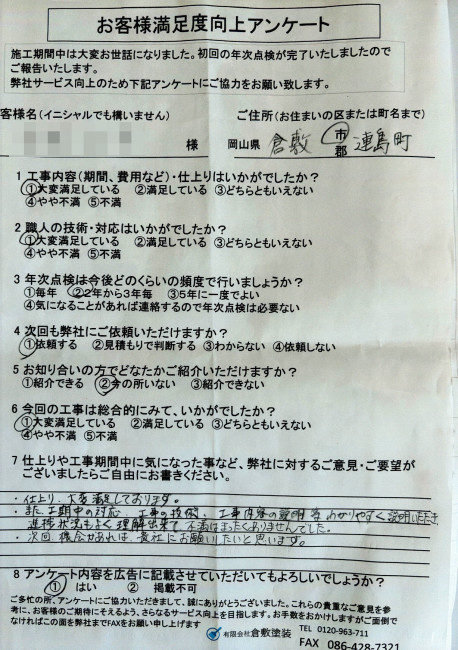 お客様満足度向上アンケート
施工期間中は大変お世話になりました。初回の年次点検が完了いたしましたので
ご報告いたします。
弊社サービス向上のため下記アンケートにご協力をお願い致します。
客様名(イニシャルでも構いません) ご住所(お住まいの区または町名まで)
様 岡山県 倉敷 市 郡 連島町
1 工事内容(期間、費用など)・仕上りはいかがでしたか?
①大変満足している ②満足している ③どちらともいえない
④やや不満 ⑤不満
2 職人の技術・対応はいかがでしたか?
①大変満足している ②満足している ③どちらともいえない
④やや不満 ⑤不満
3 年次点検は今後どのくらいの頻度で行いましょうか?
①毎年 ②2年から3年毎 ③5年に一度でよい
④気になることがあれば連絡するので年次点検は必要ない
4 次回も弊社にご依頼いただけますか?
①依頼する ②見積もりで判断する ③わからない ④依頼しない
5 お知り合いの方でどなたかご紹介いただけますか?
①紹介できる ②今の所いない ③紹介できない
6 今回の工事は総合的にみて、いかがでしたか?
①大変満足している ②満足している ③どちらともいえない
④やや不満 ⑤不満
7 仕上りや工事期間中に気になった事など、弊社に対するご意見・ご要望が
ございましたらご自由にお書きください。
・仕上り、大変満足しております。
・また工期中の対応、工事の技術、工事内容の説明等わかりやすく説明いただき
進捗状況もよく理解出来て不満はまったくありませんでした。
・次回機会があれば、貴社にお願いしたいと思います。
8 アンケート内容を広告に記載させていただいてもよろしいでしょうか?
① はい ② 掲載不可
ご多忙の所、アンケートにご協力いただきまして、誠にありがとうございました。これらの貴重なご意見を参
考に、お客様のご期待にそえるよう、さらなるサービス向上を目指します。お手数をおかけしますがご面倒で
なければこの面を弊社までFAXをお願い申し上げます
有限会社 倉敷塗装 TEL 0120-963-711
FAX 086-428-7321